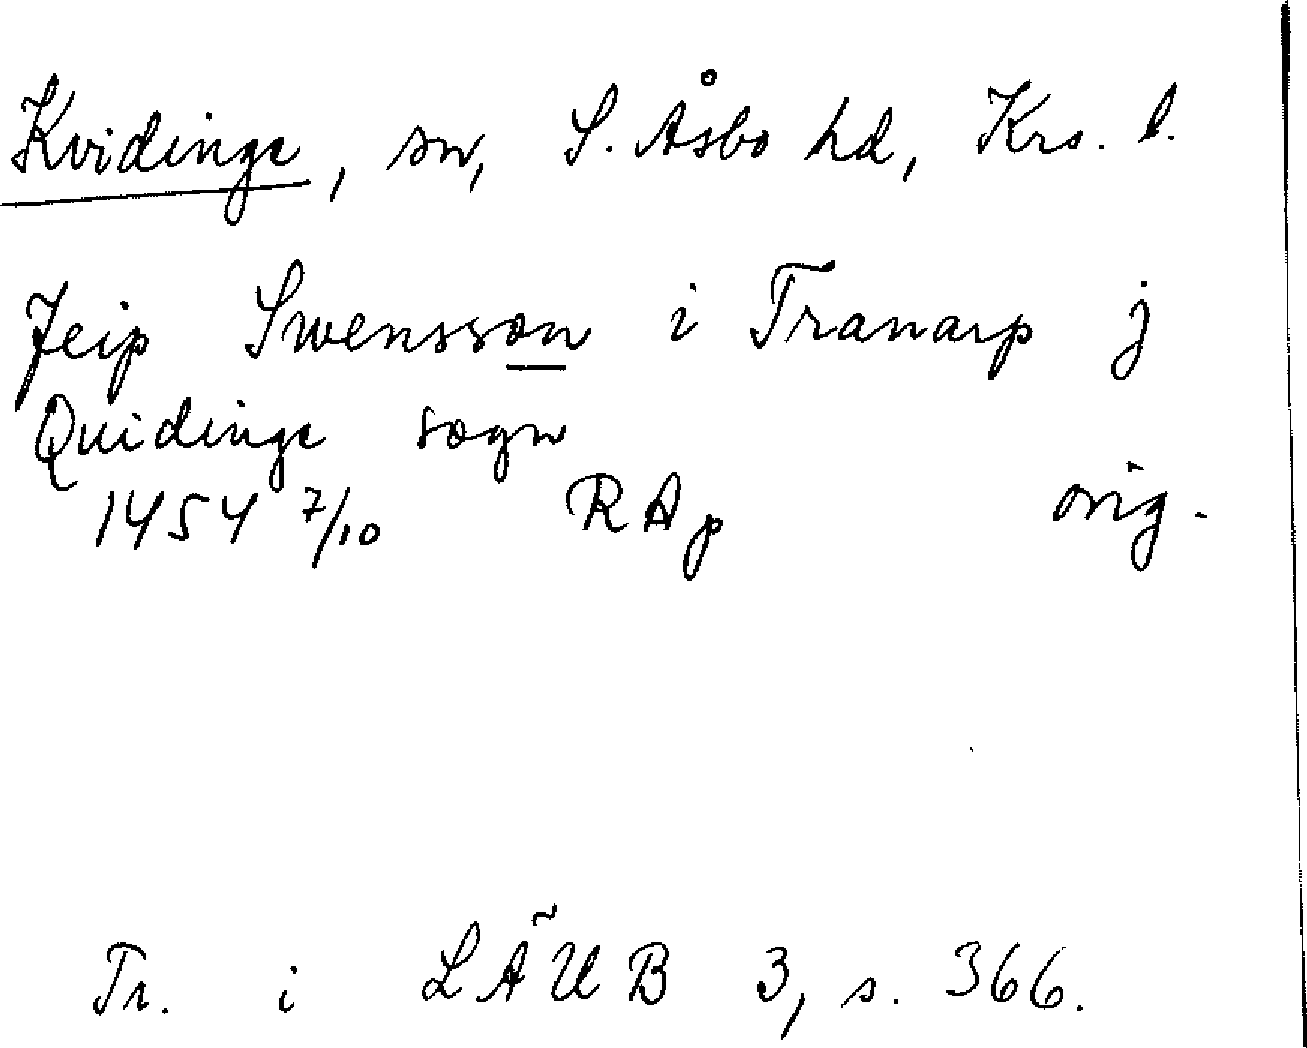 Kvidinge, sn, S. Åsbo hd, Krs. l.
Jeip Swensson i Tranarp j
Quidinge sogn
1454 7/10 RAp orig.
Tr. i LÄUB 3, s. 366.